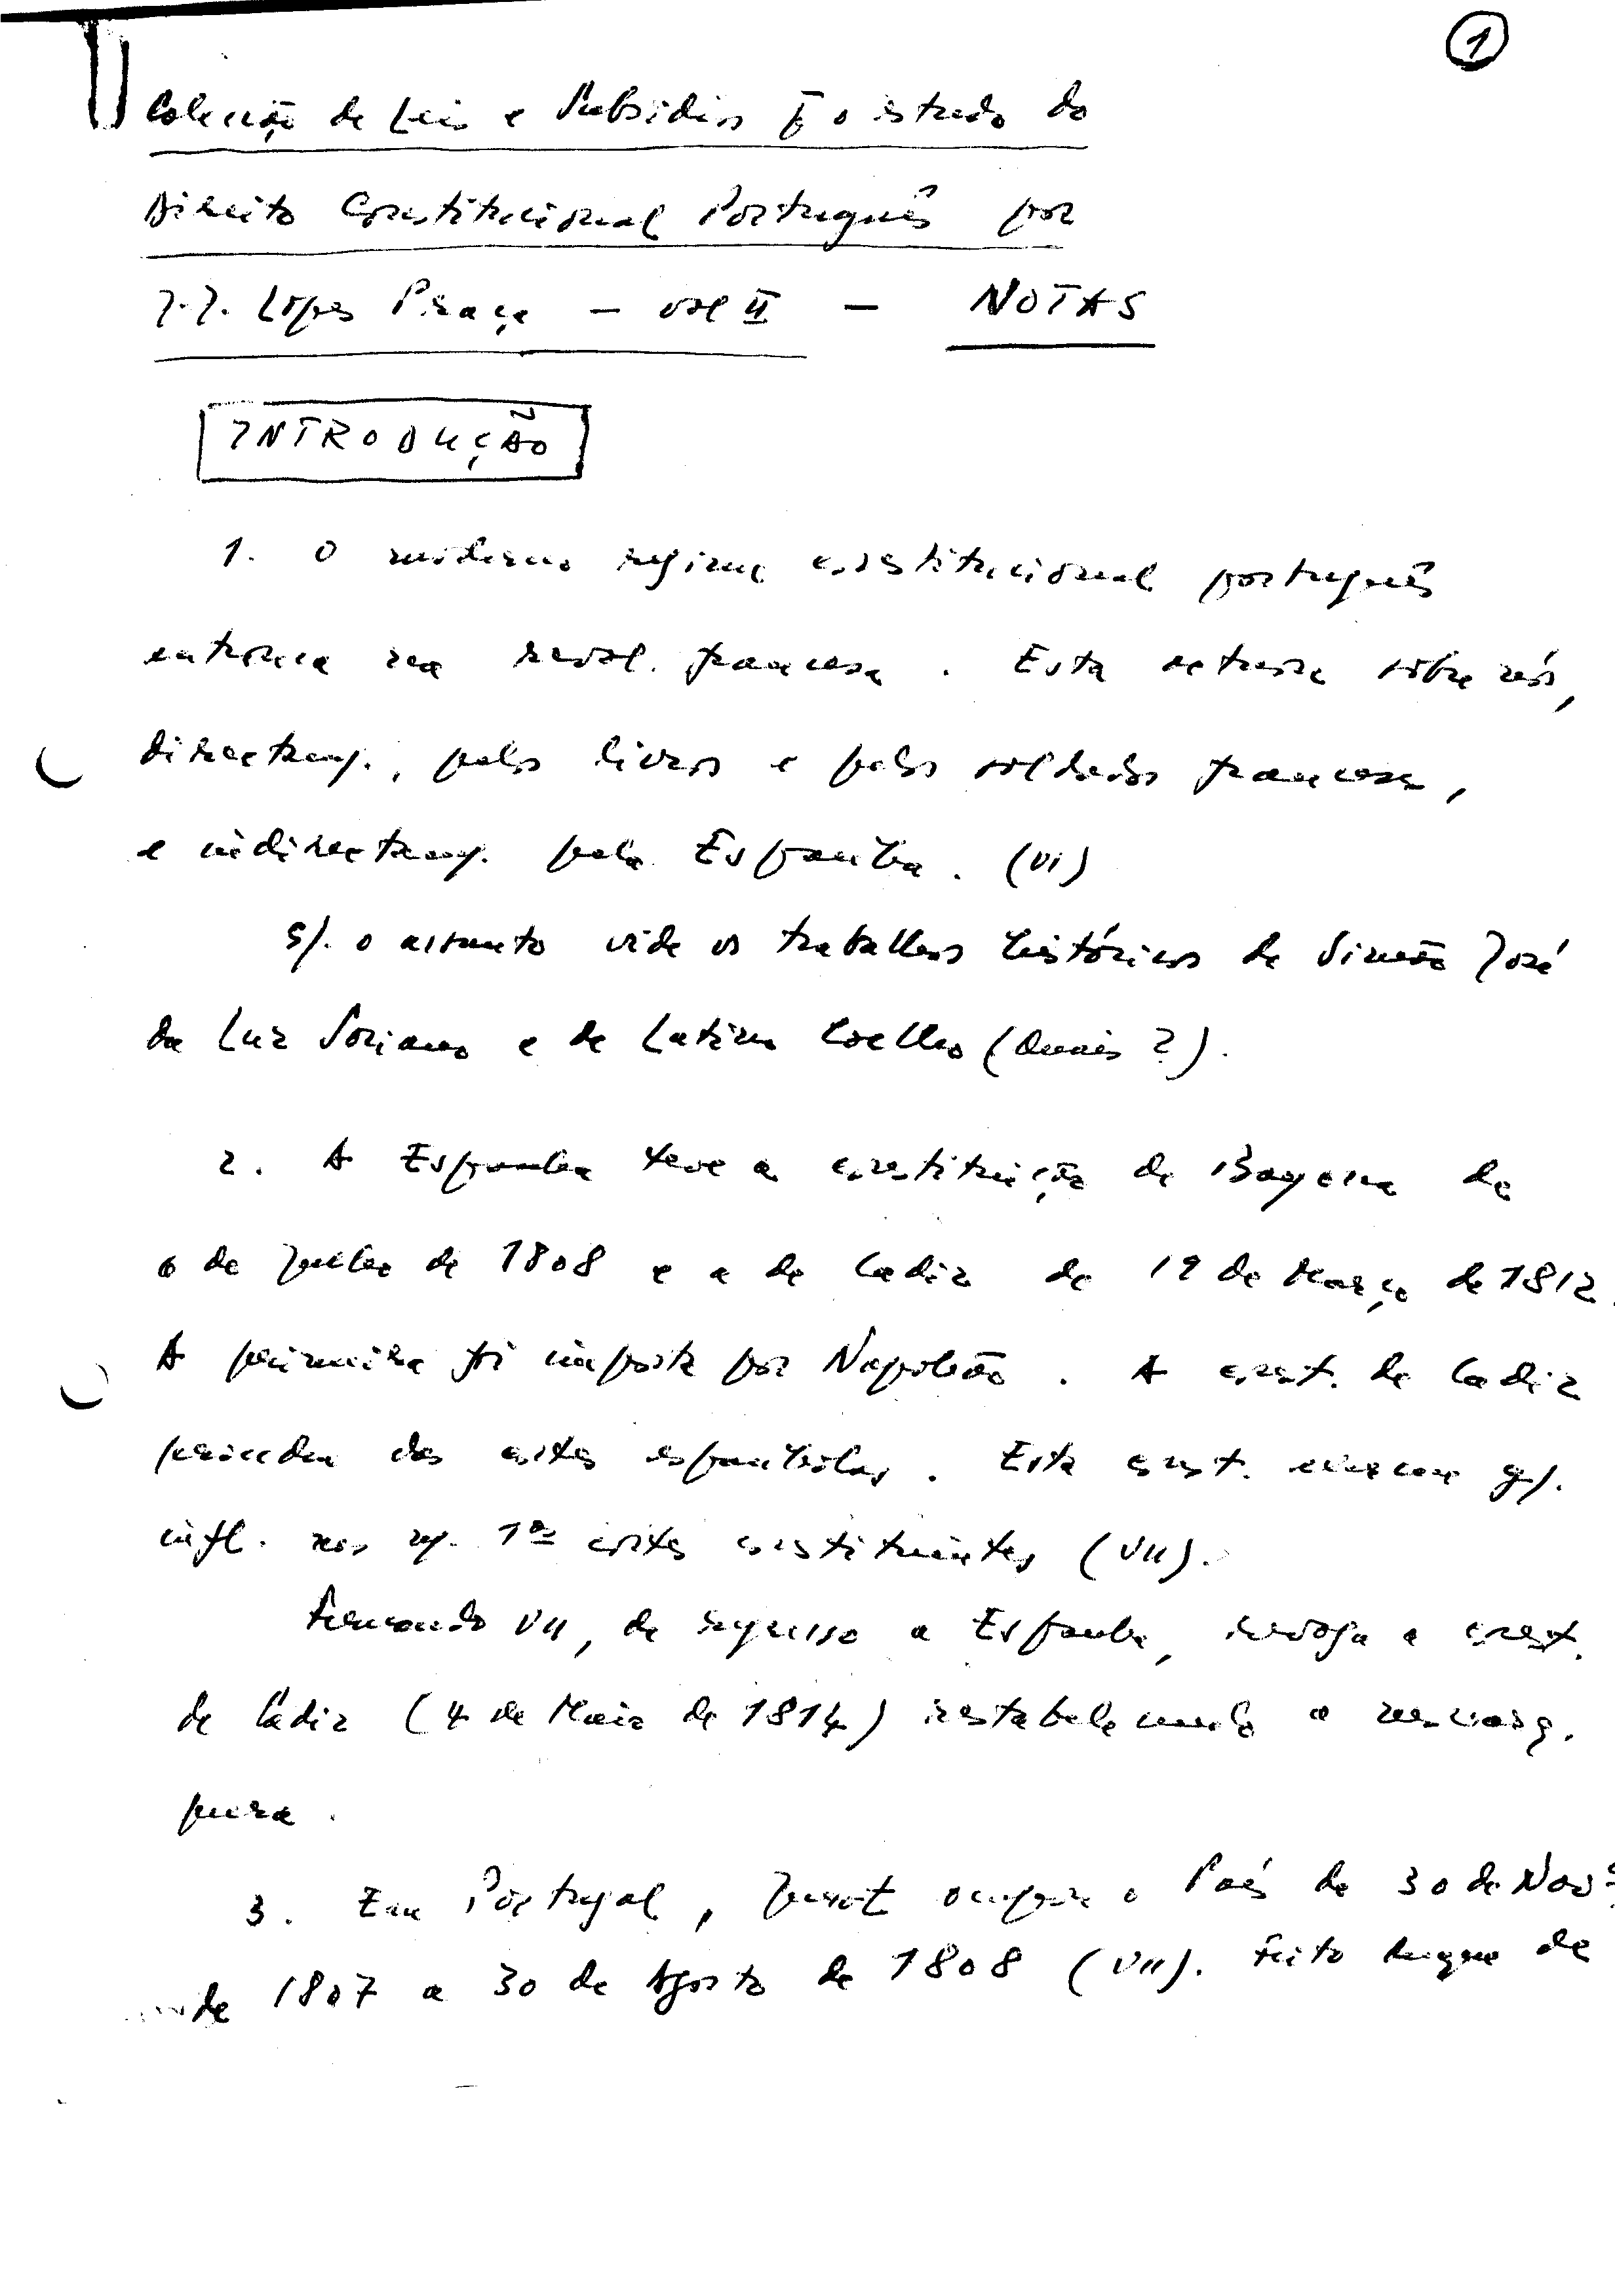 1
Colecção de Leis e Subsidios p o estudo do
Direito Constitucional Português por
J.J. Lopes Praça – vol II – NOTAS
INTRODUÇÃO
1. O moderno regime constitucional português
entronca na revol. francesa. Esta actuou sôbre nós,
directamᵉ., pelos livros e pelos soldados franceses,
e indirectamᵉ. pela Espanha. (VI)
S/. o assunto vide os trabalhos históricos de Simão José
da Luz Soriano e de Latino Coelho (Quais?).
2. A Espanha teve a constituição de Bayona de
6 de Julho de 1808 e a de Cadiz de 19 de Março de 1812.
A primeira foi imposta por Napoleão. A const. de Cadiz
procedeu das cortes espanholas. Esta const. exerceu gr.
infl. nas 1ᵃˢ côrtes constituintes (VII).
Fernando VII, de regresso a Espanha, revoga a const.
de Cádiz (4 de Maio de 1814) restabelecendo a monarq.
pura.
3. Em Portugal, Junot ocupou o País de 30 de Novº
de 1807 a 30 de Agosto de 1808 (VII). Feito duque de